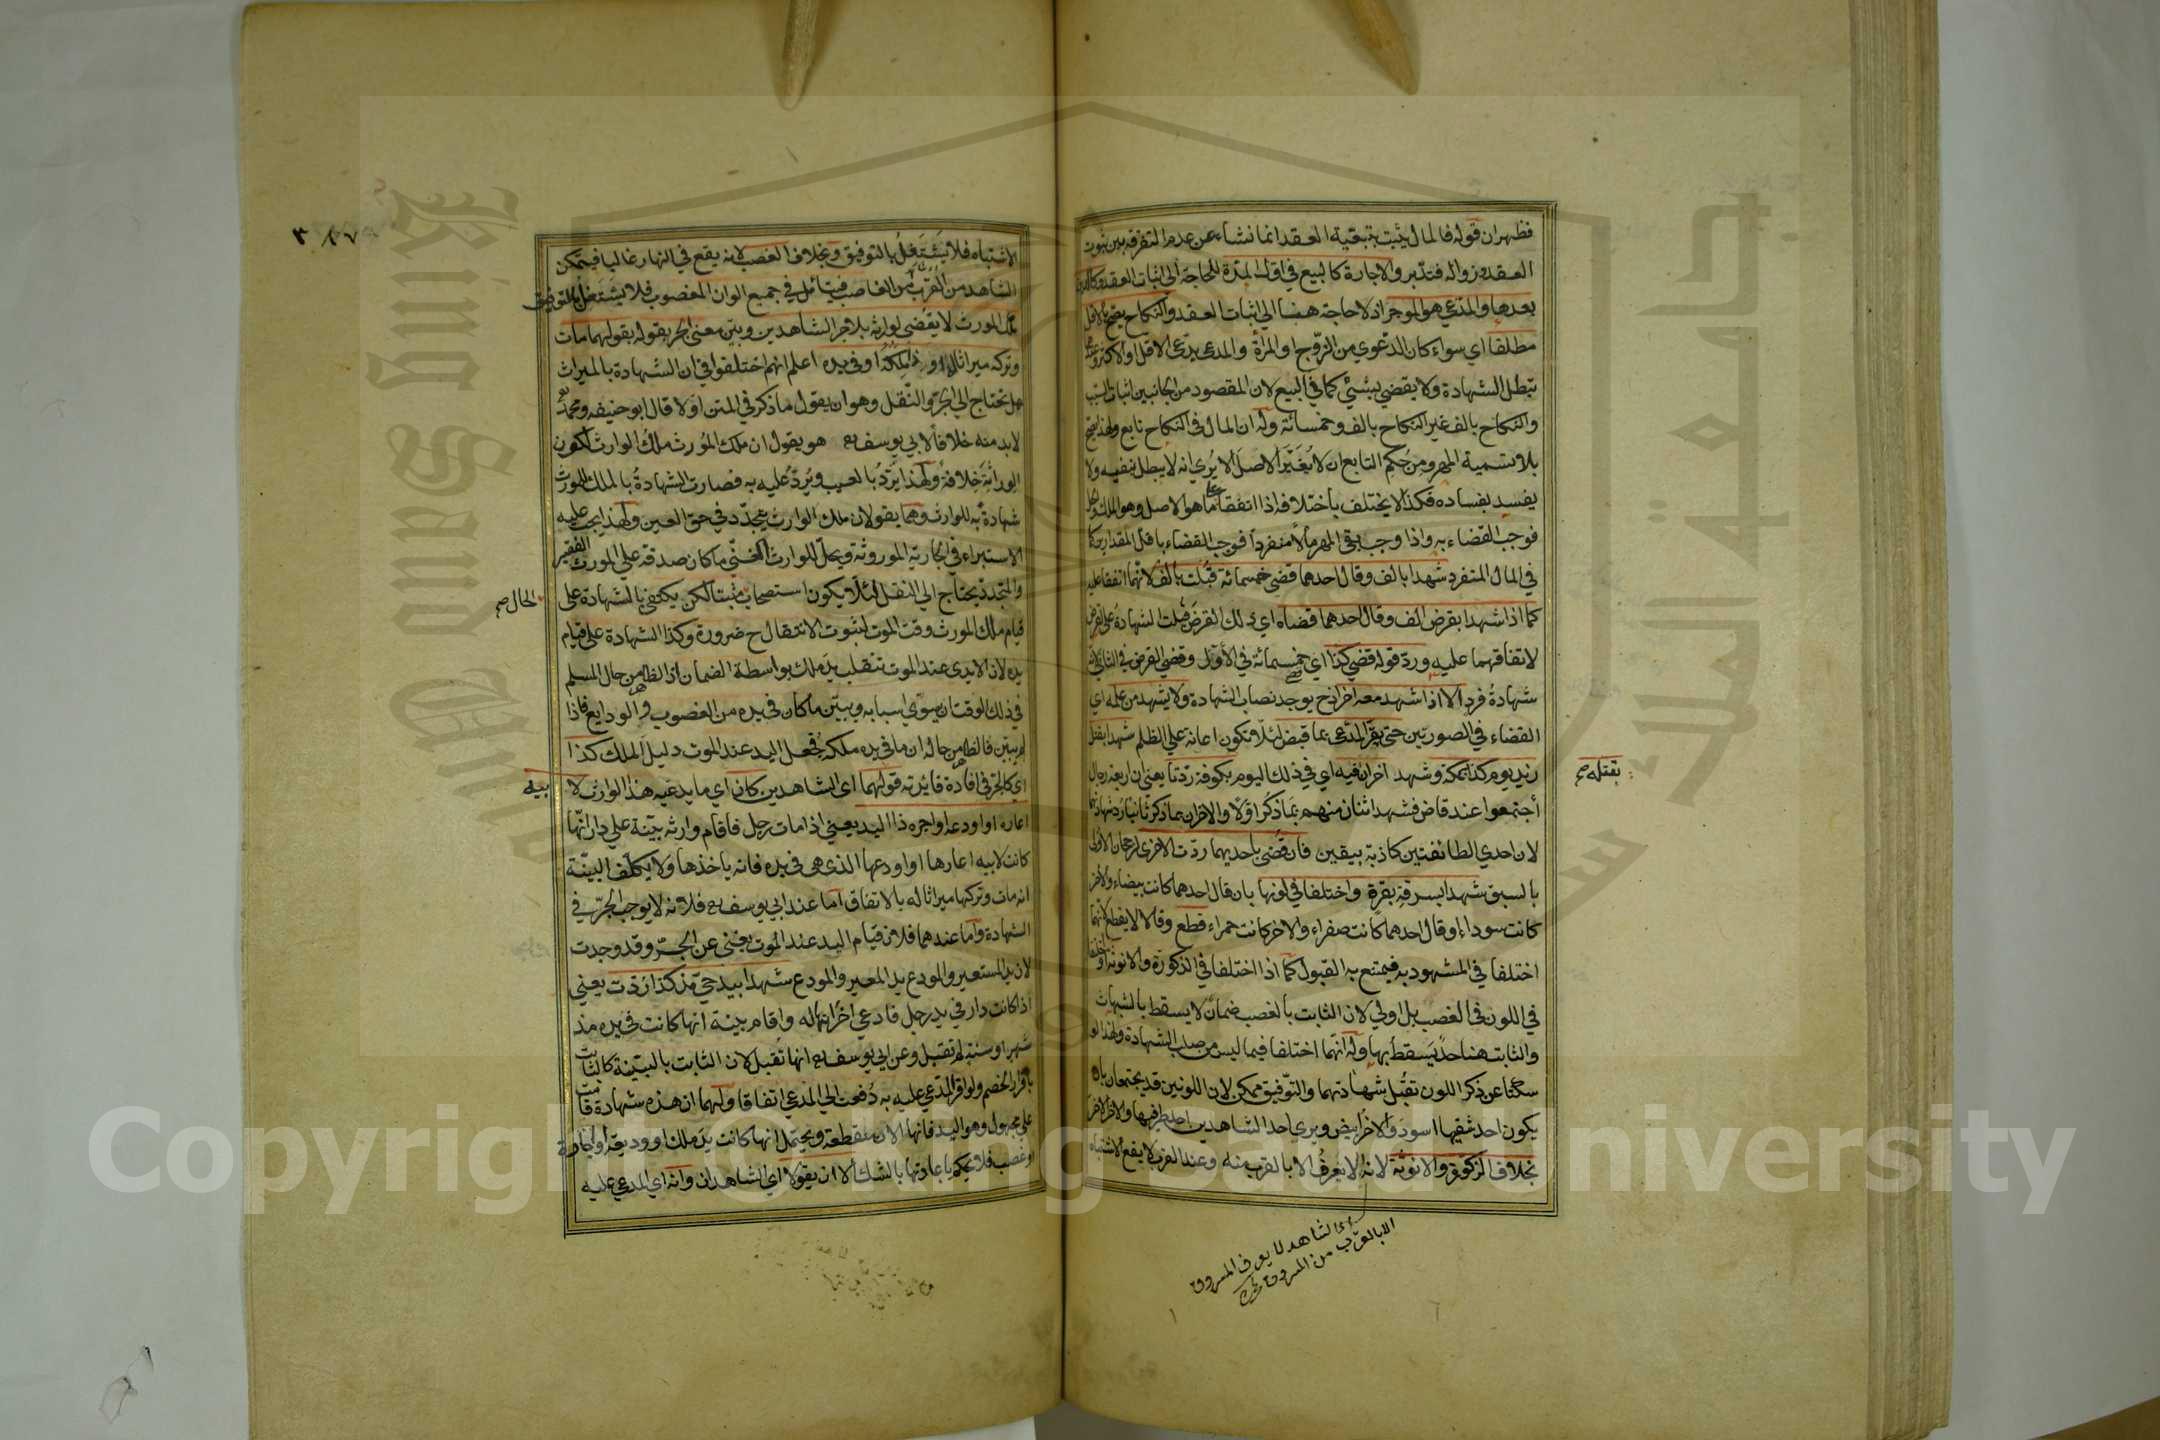 فظهران قوله فالمال يثبت بتبعية العقد انما نشأ عن عدم التفرقة بين ثبوت
العقد وزواله فتدبر والاجارة كالبيع في اول المدة للحاجة الى اثبات العقد وكالدين
بعدها والمدعي هو الموجر اذ لا حاجة هنا الي اثبات العقد والنكاح يصح بالاقل
مطلقا اي سواء كان الدعوي من الزوج او المرأة والمدعي يدعي الاقل او الاكثر
تبطل الشهادة ولا يقضي بشئ كما في البيع لان المقصود من الجانبين اثبات السبب
والنكاح بالف غير النكاح بالف وخمسائة وله ان المال في النكاح تابع ولهذا يصح
بلا تسمية المهر ومن حكم التابع ان لا يغير الاصل الا يري انه لا يبطل بنفيه ولا
يفسد بفساده فكذا لا يختلف باختلافه فاذا اتفقا علي ما هو الاصل وهو الملك
فوجب القضاء به واذا وجب بقي المهر مالا منفردا فوجب القضاء باقل المقدارين كما
في المال المنفرد شهدا بالف وقال احدهما قضي خمسمائة قبلت بالف لانهما اتفقا عليه
كما اذا شهدا بقرض الف وقال احدهما قضاه اي ذلك القرض قبلت الشهادة على القرض
لاتفاقهما عليه ورد قوله قضي كذا اي خمسمائة في الاول وقضي القرض في الثاني لانه
شهادة فرد الا اذا شهد معه اخر اذ ح يوجد نصاب الشهادة ولا يشهد من علمه اي
القضاء في الصورتين حتي يقر المدعي بما قبض لئلا تكون اعانة علي الظلم شهدا بقتل
زيد يوم كذا بمكة وشهد اخران فيه اي في ذلك اليوم بكوفة ردتا يعني ان اربعة رجال
اجتمعوا عند قاض فشهد اثنان منهم بما ذكر اولا والاخران بما ذكر ثانيا رد شهادتهما
لان احدي الطائفتين كاذبة بيقين فان قضي باحديهما ردت الاخري لرجحان الاولى
بالسبق شهدا بسرقة بقرة واختلفا في لونها بان قال احدهما كانت بيضاء والاخر
كانت سوداء او قال احدهما كانت صفراء والاخر كانت حمراء قطع وقالا لا يقطع لانهما
اختلفا في المشهود به فيمتنع به القبول كما اذا اختلفا في الذكورة والانوثة او اختلفا
في اللون في الغصب بل اولي لان الثابت بالغصب ضمان لا يسقط بالشبهات
والثابت هنا حد يسقط بها وله انهما اختلفا فيما ليس من صلب الشهادة ولهذا لو
سكتا عن ذكر اللون تقبل شهادتهما والتوفيق ممكن لان اللونين قد يجتمعان بان
يكون احد شقيها اسود والاخر ابيض ويري احد الشاهدين احد طرفيها والاخر الاخر
بخلاف الذكورة والانوثة لانه لا يعرف الا بالقرب منه وعند القرب لا يقع الاشتباه
بقتله صح
اي الشاهد لا يعرف المسروق
الا بالقرب من المسروق
الاشتباه فلا يشتغل بالتوفيق وبخلاف الغصب لانه يقع في النهار غالبا فيتمكن
الشاهد من القرب من الغاصب فيتأمل في جميع الوان المغصوب فلا يشتغل بالتوفيق
ملك المورث لا يقضي لوارثه بلا جر الشاهدين وبين معني الجر بقوله بقولهما مات
وتركه ميراثا له او وذا ملكه او في يده اعلم انهم اختلفوا في ان الشهادة بالميراث
هل تحتاج الي الجر والنقل وهو ان يقول ما ذكر في المتن او لا قال ابو حنيفة ومحمد
لا بد منه خلافا لابي يوسف هو يقول ان ملك المورث ملك الوارث لكون
الوراثة خلافة ولهذا يرد بالعيب ويرد عليه به فصارت الشهادة بالملك للمورث
شهادة به للوارث وهما يقولان ملك الوارث يتجدد في حق العين ولهذا يجب عليه
الاستبراء في الجارية الموروثة ويحل للوارث الغني ما كان صدقة علي المورث الفقير
والمتجدد يحتاج الي النقل لئلا يكون استصحاب الحال مثبتا لكن يكتفي بالشهادة على
قيام ملك المورث وقت الموت لثبوت الانتقال ح ضرورة وكذا الشهادة علي قيام
يده لان الايدي عند الموت تنقلب يد ملك بواسطة الضمان اذ الظاهر من حال المسلم
في ذلك الوقت ان يسوي اسبابه ويبين ما كان في يده من الغصوب والودايع فاذا
لم يبين فالظاهر من حاله ان ما في يده ملكه فجعل اليد عند الموت دليل الملك كذا
اي كالجر في افادة فائدته قولهما اي الشاهدين كان اي ما يدعيه هذا الوارث لابيه
اعاره او اودعه او اجره ذا اليد يعني اذا مات رجل فاقام وارثه بينة علي دار انها
كانت لابيه اعارها او اودعها الذي هي في يده فانه ياخذها ولا يكلف البينة
انه مات وتركها ميراثا له بالاتفاق اما عند ابي يوسف فلانه لا يوجب الجر في
الشهادة واما عندهما فلان قيام اليد عند الموت يغني عن الجر وقد وجدت
لان يد المستعير والمودع يد المعير والمودع شهدا بيد حي مذ كذا ردت يعني
اذا كانت دار في يد رجل فادعي اخر انها له واقام بينة انها كانت في يده مذ
شهر او سنة لم تقبل وعن ابي يوسف انها تقبل لان الثابت بالبينة كالثابت
باقرار الخصم ولو اقر المدعي عليه به دفعت الي المدعي اتفاقا ولهما ان هذه شهادة قامت
علي مجهول وهو اليد فانها الان منقطعة ويحتمل انها كانت يد ملك او وديعة او اجارة
او غصب فلا يحكم باعادتها بالشك الا ان يقولا اي الشاهدان وانه اي المدعي عليه
الحال صح
بيه
King Saud University
جامعة الملك سعود
Copyright © King Saud University